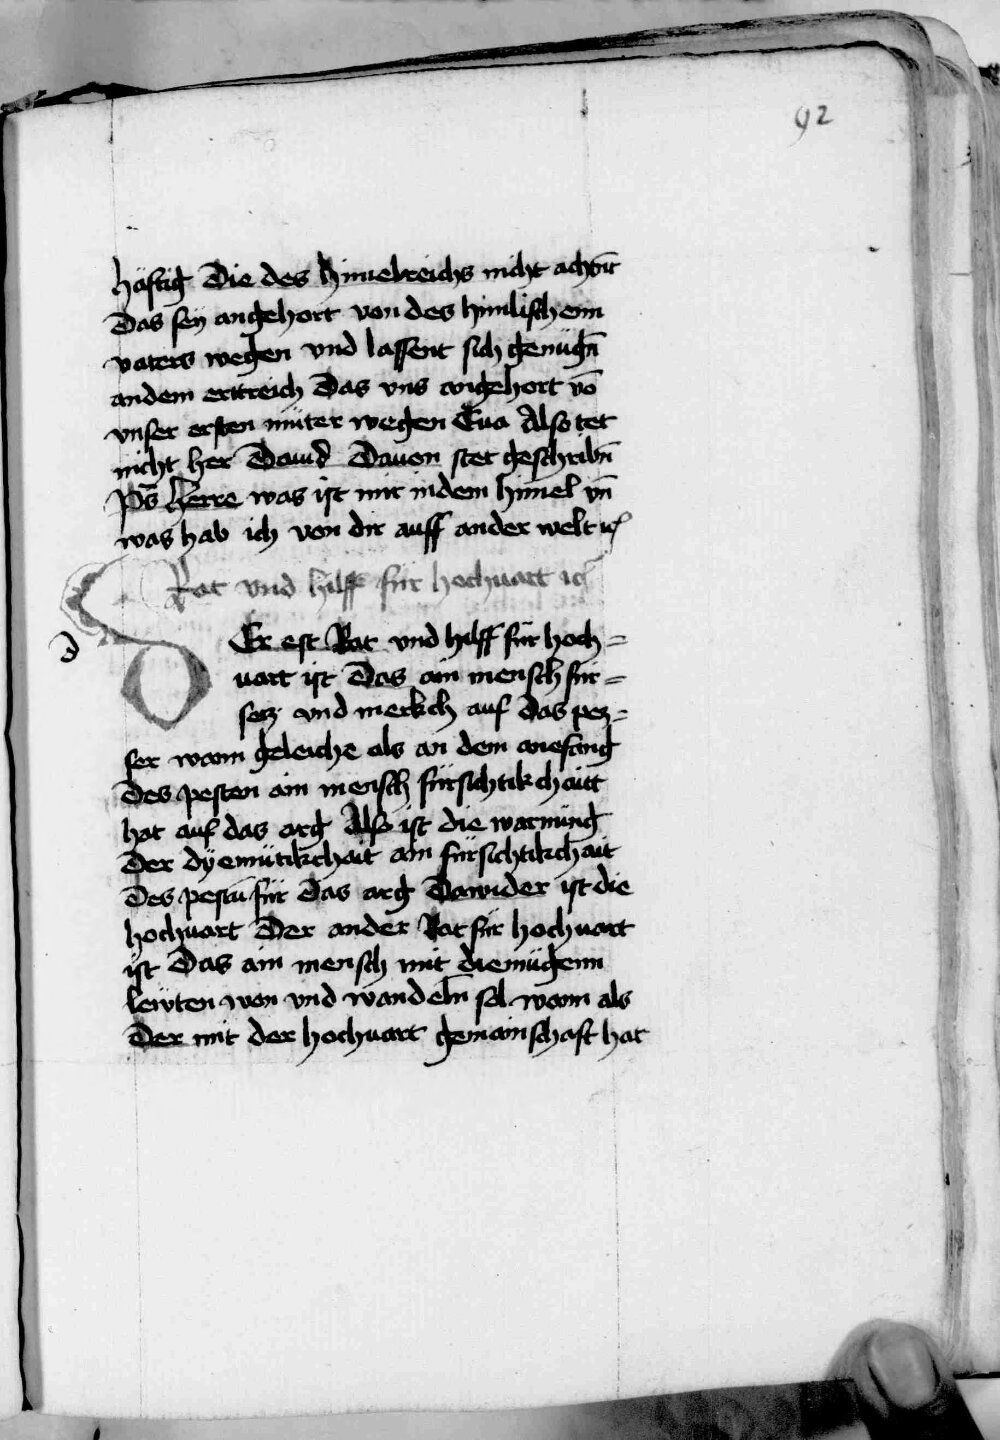 92
häftig Die des himelreichs nicht achtn̄t
Das sey angehört von des himlischenn
vaters wegen vnd lassent sich genügn̄
andem erttreich Das vns angehort vō
vnser ersten müter wegen Eua Also tet
nicht her Dauid Dauon stet geschribn̄
Ps̄ herre was ist mir indem himel vn̄
was hab ich von dir auff ander welt ꝛc
Rat vnd hilff für hochuart ꝛc
d
DEr erst Rat vnd hilff für hoch=
uart ist Das ain mensch für=
secz vnd merkch auf das pez=
ser wann geleiche als an dem anefang
Des pesten ain mensch fürsichtikchaitt
hat auf das arg Also ist die warnüng
Der dyemütikchait ain fürsichtikchait
Des pestn̄ für Das arg Dawider ist die
hochuart Der ander Rat für hochuart
ist Das ain mensch mit diemügenn
lewten won vnd wandeln sol wann als
Der mit der hochuart gemainschaft hat